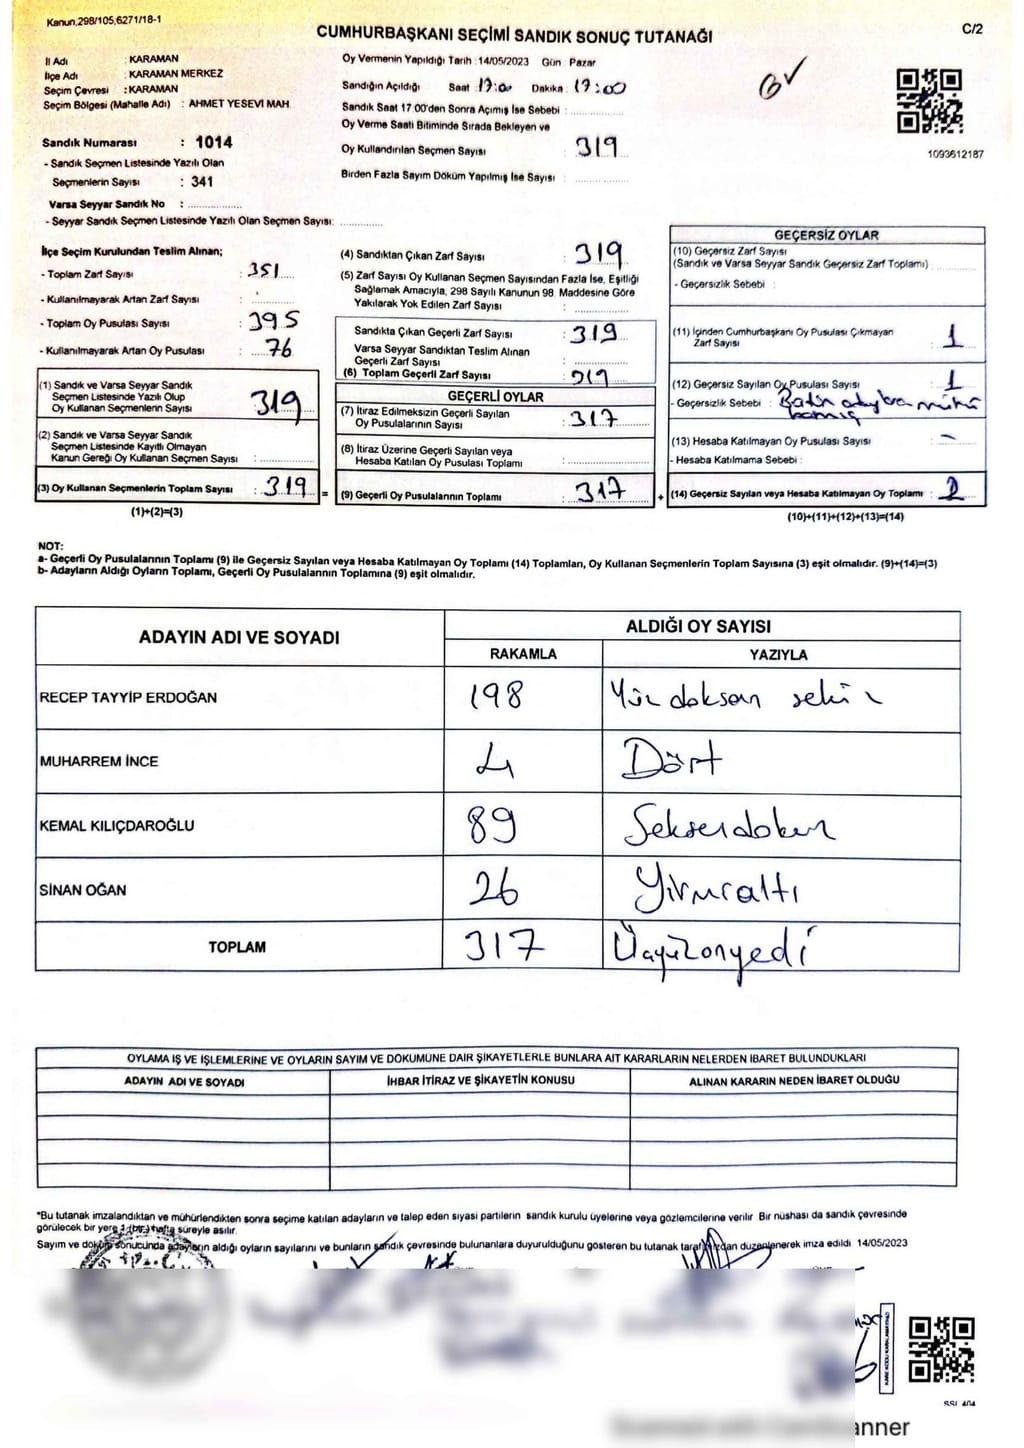 Kanun,298/105,6271/18-1
CUMHURBAŞKANI SEÇİMİ SANDIK SONUÇ TUTANAĞI
C/2
İl Adı : KARAMAN
İlçe Adı : KARAMAN MERKEZ
Seçim Çevresi : KARAMAN
Seçim Bölgesi (Mahalle Adı) : AHMET YESEVİ MAH.
Sandık Numarası : 1014
- Sandık Seçmen Listesinde Yazılı Olan
Seçmenlerin Sayısı : 341
Varsa Seyyar Sandık No :
- Seyyar Sandık Seçmen Listesinde Yazılı Olan Seçmen Sayısı:
Oy Vermenin Yapıldığı Tarih : 14/05/2023 Gün : Pazar
Sandığın Açıldığı Saat : 17:00 Dakika : 17:00
Sandık Saat 17:00'den Sonra Açımış İse Sebebi :
Oy Verme Saati Bitiminde Sırada Bekleyen ve
Oy Kullandırılan Seçmen Sayısı : 319
Birden Fazla Sayım Döküm Yapılmış İse Sayısı :
1093612187
İlçe Seçim Kurulundan Teslim Alınan;
- Toplam Zarf Sayısı : 351
- Kullanılmayarak Artan Zarf Sayısı :
- Toplam Oy Pusulası Sayısı : 395
- Kullanılmayarak Artan Oy Pusulası : 76
(1) Sandık ve Varsa Seyyar Sandık
Seçmen Listesinde Yazılı Olup
Oy Kullanan Seçmenlerin Sayısı : 319
(2) Sandık ve Varsa Seyyar Sandık
Seçmen Listesinde Kayıtlı Olmayan
Kanun Gereği Oy Kullanan Seçmen Sayısı :
(3) Oy Kullanan Seçmenlerin Toplam Sayısı : 319 =
(1)+(2)=(3)
(4) Sandıktan Çıkan Zarf Sayısı : 319
(5) Zarf Sayısı Oy Kullanan Seçmen Sayısından Fazla İse, Eşitliği
Sağlamak Amacıyla, 298 Sayılı Kanunun 98. Maddesine Göre
Yakılarak Yok Edilen Zarf Sayısı :
Sandıkta Çıkan Geçerli Zarf Sayısı : 319
Varsa Seyyar Sandıktan Teslim Alınan
Geçerli Zarf Sayısı :
(6) Toplam Geçerli Zarf Sayısı : 319
GEÇERLİ OYLAR
(7) İtiraz Edilmeksizin Geçerli Sayılan
Oy Pusulalarının Sayısı : 317
(8) İtiraz Üzerine Geçerli Sayılan veya
Hesaba Katılan Oy Pusulası Toplamı :
(9) Geçerli Oy Pusulalarının Toplamı : 317 +
GEÇERSİZ OYLAR
(10) Geçersiz Zarf Sayısı
(Sandık ve Varsa Seyyar Sandık Geçersiz Zarf Toplamı) :
- Geçersizlik Sebebi :
(11) İçinden Cumhurbaşkanı Oy Pusulası Çıkmayan
Zarf Sayısı : 1
(12) Geçersiz Sayılan Oy Pusulası Sayısı : 1
- Geçersizlik Sebebi :
(13) Hesaba Katılmayan Oy Pusulası Sayısı : -
- Hesaba Katılmama Sebebi :
(14) Geçersiz Sayılan veya Hesaba Katılmayan Oy Toplamı : 2
(10)+(11)+(12)+(13)=(14)
NOT:
a- Geçerli Oy Pusulalarının Toplamı (9) ile Geçersiz Sayılan veya Hesaba Katılmayan Oy Toplamı (14) Toplamları, Oy Kullanan Seçmenlerin Toplam Sayısına (3) eşit olmalıdır. (9)+(14)=(3)
b- Adayların Aldığı Oyların Toplamı, Geçerli Oy Pusulalarının Toplamına (9) eşit olmalıdır.
ADAYIN ADI VE SOYADI
ALDIĞI OY SAYISI
RAKAMLA YAZIYLA
RECEP TAYYİP ERDOĞAN 198 Yüz doksan sekiz
MUHARREM İNCE 4 Dört
KEMAL KILIÇDAROĞLU 89 Seksendokuz
SİNAN OĞAN 26 Yirmialtı
TOPLAM 317 Üçyüzonyedi
OYLAMA İŞ VE İŞLEMLERİNE VE OYLARIN SAYIM VE DÖKÜMÜNE DAİR ŞİKAYETLERLE BUNLARA AİT KARARLARIN NELERDEN İBARET BULUNDUKLARI
ADAYIN ADI VE SOYADI İHBAR İTİRAZ VE ŞİKAYETİN KONUSU ALINAN KARARIN NEDEN İBARET OLDUĞU
*Bu tutanak imzalandıktan ve mühürlendikten sonra seçime katılan adayların ve talep eden siyasi partilerin sandık kurulu üyelerine veya gözlemcilerine verilir. Bir nüshası da sandık çevresinde
görülecek bir yere 1 (bir) hafta süreyle asılır.
Sayım ve döküm sonucunda adayların aldığı oyların sayılarını ve bunların sandık çevresinde bulunanlara duyurulduğunu gösteren bu tutanak tarafımızdan düzenlenerek imza edildi. 14/05/2023